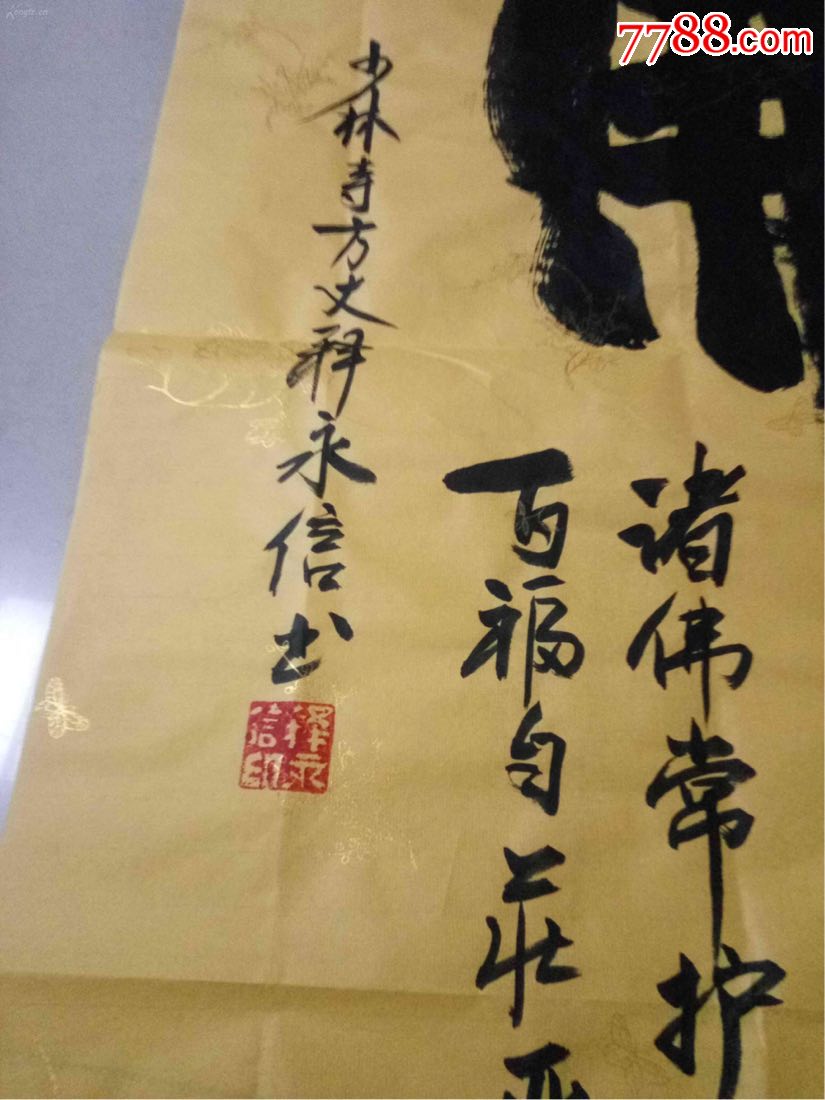 7788.com
诸佛常护
百福自莊
少林寺方丈释永信书
释永信印